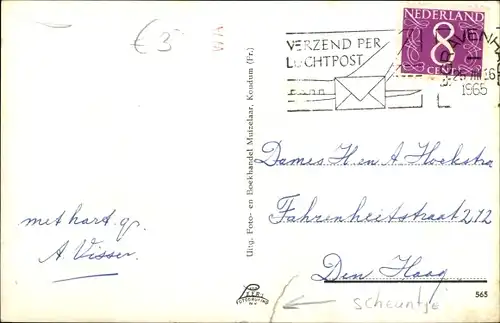 € 3
VERZEND PER
LUCHTPOST
NEDERLAND
8
CENT
1965
met hart. gr.
A. Visser.
Uitg. Foto- en Boekhandel Muizelaar, Koudum (Fr.)
Dames H en A Hoekstra
Fahrenheitstraat 212
Den Haag
scheurtje
565